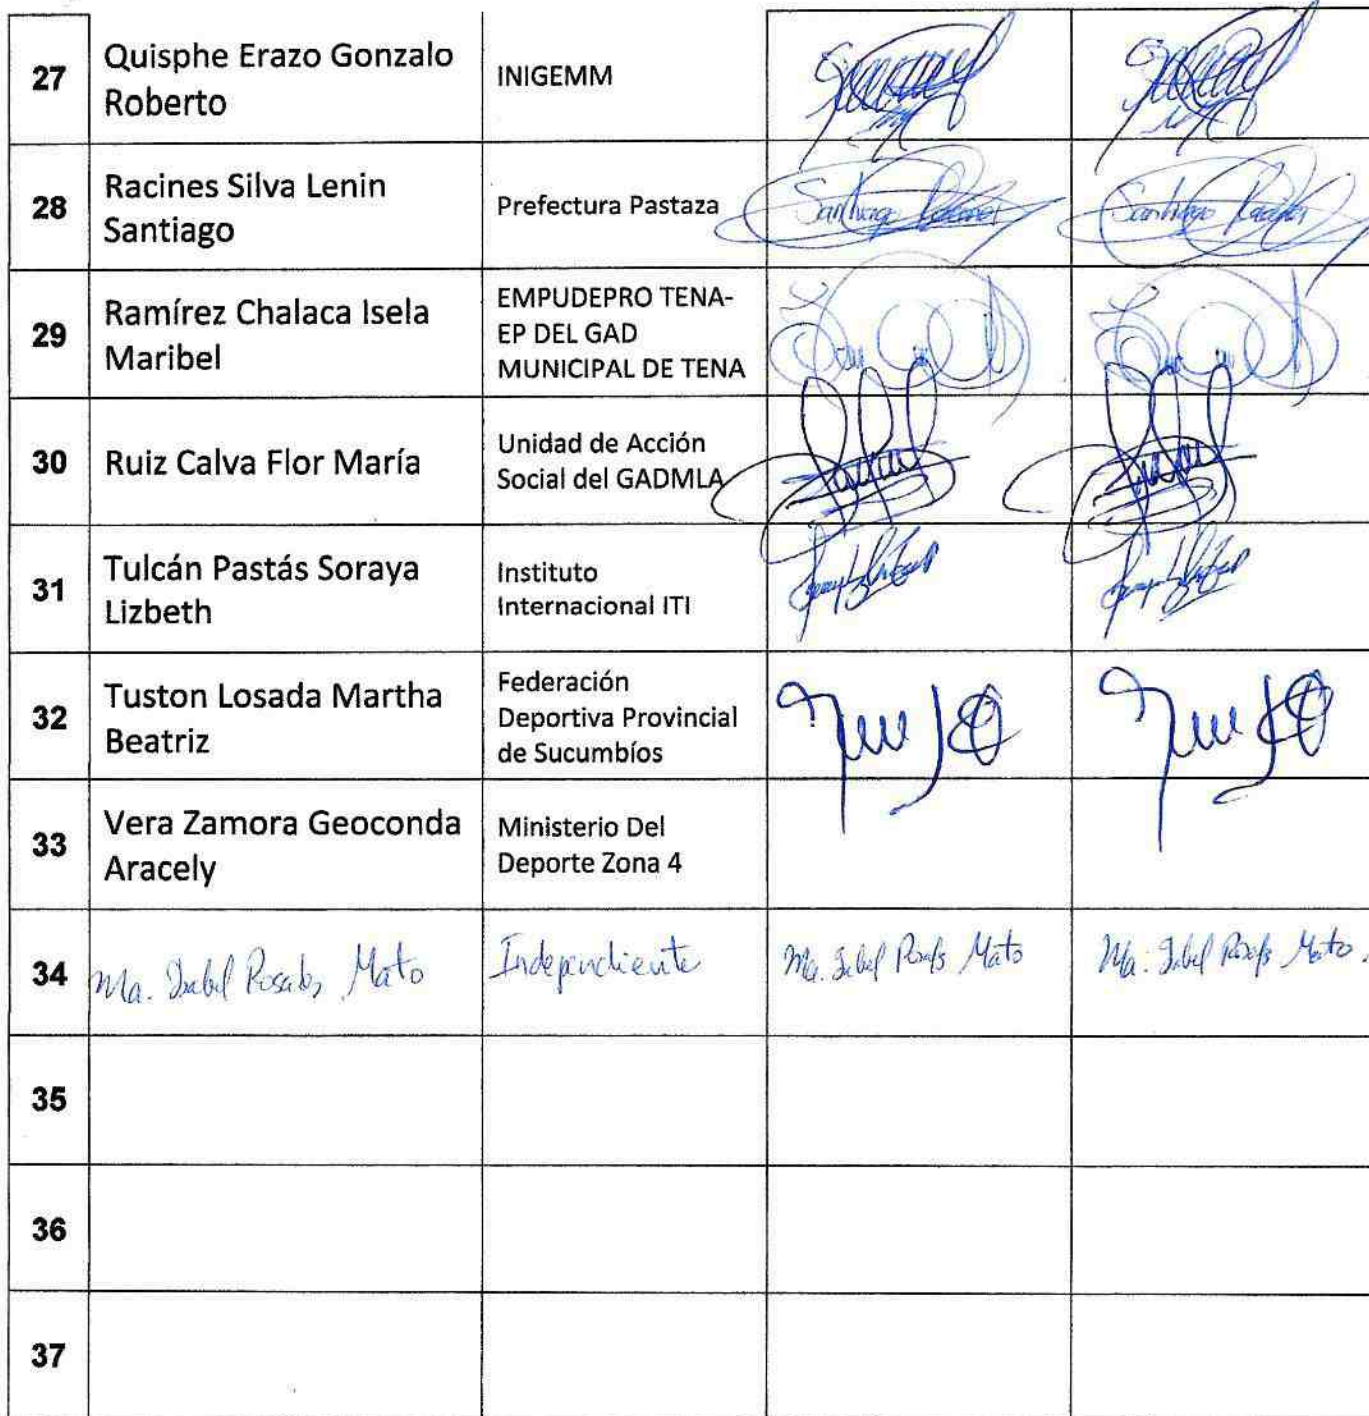 27
Quisphe Erazo Gonzalo
Roberto
INIGEMM
28
Racines Silva Lenin
Santiago
Prefectura Pastaza
Santiago
Santiago
29
Ramírez Chalaca Isela
Maribel
EMPUDEPRO TENA-
EP DEL GAD
MUNICIPAL DE TENA
30
Ruiz Calva Flor María
Unidad de Acción
Social del GADMLA
31
Tulcán Pastás Soraya
Lizbeth
Instituto
Internacional ITI
32
Tuston Losada Martha
Beatriz
Federación
Deportiva Provincial
de Sucumbíos
33
Vera Zamora Geoconda
Aracely
Ministerio Del
Deporte Zona 4
34
Ma. Isabel Rosales Mato
Independiente
Ma. Isabel Rosales Mato
Ma. Isabel Rosales Mato.
35
36
37